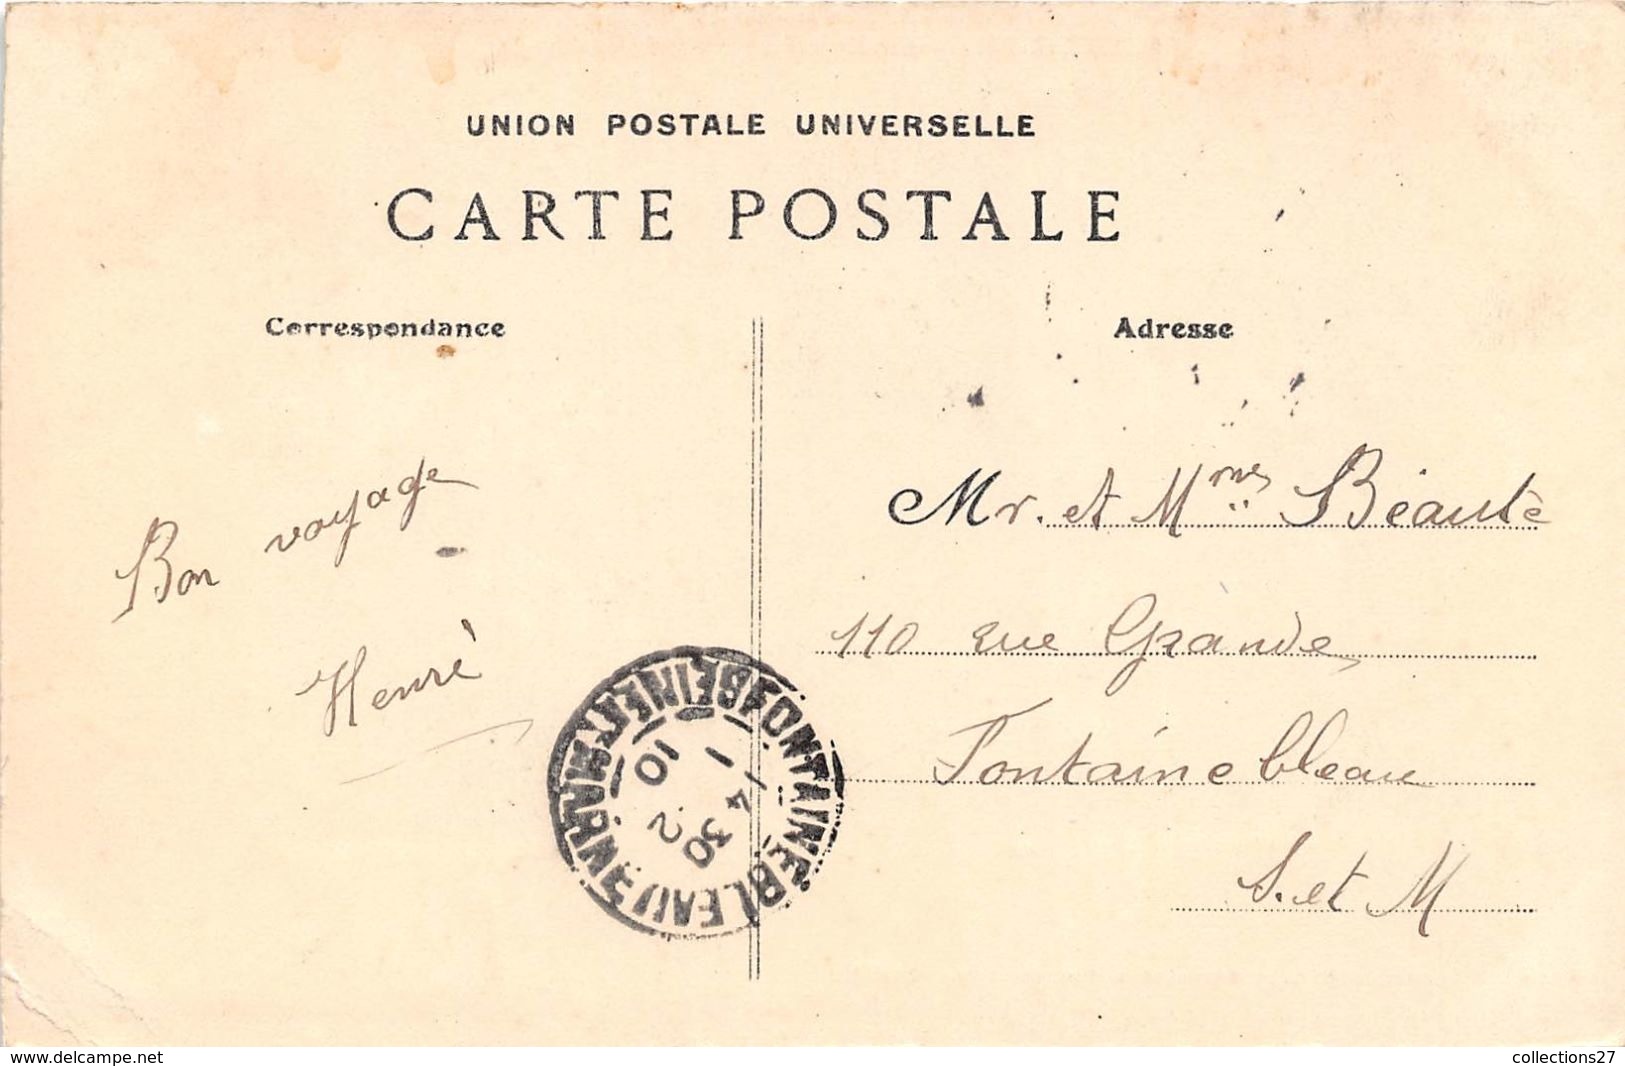 UNION POSTALE UNIVERSELLE
CARTE POSTALE
Correspondance
Adresse
Bon voyage
Henri
Mr. et Mmes Béauté
110 rue Grande,
Fontainebleau
S. et M
FONTAINEBLEAU
SEINE ET MARNE
14 30
1 2
10
www.delcampe.net
collections27